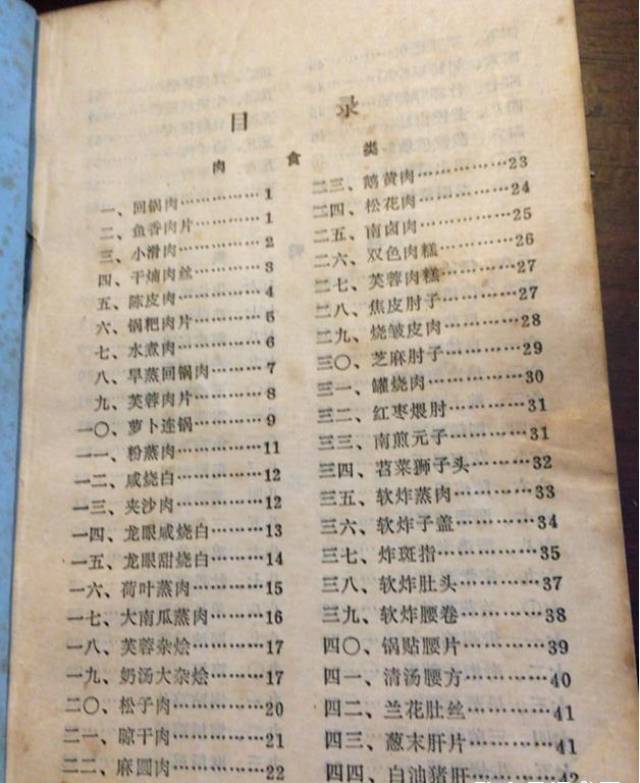 目录
肉食类
一、回锅肉……………1
二、鱼香肉片…………1
三、小滑肉……………2
四、干煵肉丝…………3
五、陈皮肉……………4
六、锅粑肉片…………5
七、水煮肉……………6
八、旱蒸回锅肉………7
九、芙蓉肉片…………8
一〇、萝卜连锅………9
一一、粉蒸肉…………11
一二、咸烧白…………12
一三、夹沙肉…………12
一四、龙眼咸烧白……13
一五、龙眼甜烧白……14
一六、荷叶蒸肉………15
一七、大南瓜蒸肉……16
一八、芙蓉杂烩………17
一九、奶汤大杂烩……17
二〇、松子肉…………20
二一、晾干肉…………21
二二、麻圆肉…………22
二三、鹅黄肉…………23
二四、松花肉…………24
二五、南卤肉…………25
二六、双色肉糕………26
二七、芙蓉肉糕………27
二八、焦皮肘子………27
二九、烧皱皮肉………28
三〇、芝麻肘子………29
三一、罐烧肉…………30
三二、红枣煨肘………31
三三、南煎元子………31
三四、苕菜狮子头……32
三五、软炸蒸肉………33
三六、软炸子盖………34
三七、炸斑指…………35
三八、软炸肚头………37
三九、软炸腰卷………38
四〇、锅贴腰片………39
四一、清汤腰方………40
四二、兰花肚丝………41
四三、葱末肝片………41
四四、白油猪肝………42